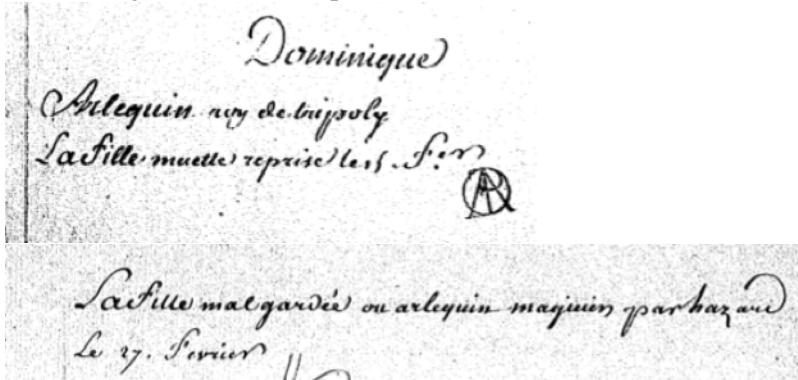 Dominique
Arlequin roy de tripoly
La fille muette reprise le 15. F.er
La fille mal gardée ou arlequin magicien par hazard
Le 27. Fevrier